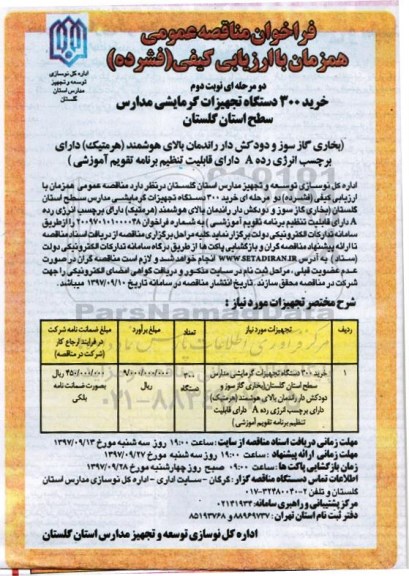 فراخوان مناقصه عمومی
همزمان با ارزیابی کیفی (فشرده)
اداره کل نوسازی
توسعه و تجهیز
مدارس استان
گلستان
دو مرحله ای نوبت دوم
خرید ۳۰۰ دستگاه تجهیزات گرمایشی مدارس
سطح استان گلستان
(بخاری گاز سوز و دودکش دار راندمان بالای هوشمند (هرمتیک) دارای
برچسب انرژی رده A دارای قابلیت تنظیم برنامه تقویم آموزشی)
اداره کل نوسازی توسعه و تجهیز مدارس استان گلستان در نظر دارد مناقصه عمومی همزمان با
ارزیابی کیفی (فشرده) دو مرحله ای خرید ۳۰۰ دستگاه تجهیزات گرمایشی مدارس سطح استان
گلستان (بخاری گاز سوز و دودکش دار راندمان بالای هوشمند (هرمتیک) دارای برچسب انرژی رده
A دارای قابلیت تنظیم برنامه تقویم آموزشی) به شماره فراخوان ۲۰۰۹۷۰۱۰۱۰۰۰۰۲۸ را از طریق
سامانه تدارکات الکترونیکی دولت برگزار نماید کلیه مراحل برگزاری مناقصه از دریافت اسناد مناقصه
تا ارائه پیشنهاد مناقصه گران و بازگشایی پاکت ها از طریق درگاه سامانه تدارکات الکترونیکی دولت
(ستاد) به آدرس WWW.SETADIRAN.IR انجام خواهد شد و لازم است مناقصه گران در صورت
عدم عضویت قبلی، مراحل ثبت نام در سایت مذکور و دریافت گواهی امضای الکترونیکی را جهت
شرکت در مناقصه محقق سازند. تاریخ انتشار مناقصه در سامانه تاریخ ۱۳۹۷/۰۹/۱۰ میباشد.
شرح مختصر تجهیزات مورد نیاز :
ردیف تجهیزات مورد نیاز تعداد مبلغ برآورد مبلغ ضمانت نامه شرکت
در فرایند ارجاع کار
(شرکت در مناقصه)
۱ خرید ۳۰۰ دستگاه تجهیزات گرمایشی مدارس ۳۰۰ ۹/۰۰۰/۰۰۰/۰۰۰ ۴۵۰/۰۰۰/۰۰۰ ریال
سطح استان گلستان (بخاری گاز سوز و دستگاه ریال بصورت ضمانت نامه
دودکش دار راندمان بالای هوشمند (هرمتیک) بانکی
دارای برچسب انرژی رده A دارای قابلیت
تنظیم برنامه تقویم آموزشی)
مهلت زمانی دریافت اسناد مناقصه از سایت : ساعت ۱۹:۰۰ روز سه شنبه مورخ ۱۳۹۷/۰۹/۱۳
مهلت زمانی ارائه پیشنهاد : ساعت ۱۹:۰۰ روز سه شنبه مورخ ۱۳۹۷/۰۹/۲۷
زمان بازگشایی پاکت ها : ساعت ۰۹:۰۰ صبح روز چهارشنبه مورخ ۱۳۹۷/۰۹/۲۸
اطلاعات تماس دستگاه مناقصه گزار : گرگان - سایت اداری - اداره کل نوسازی مدارس استان
گلستان و تلفن ۲-۳۲۴۸۰۰۴۰-۰۱۷
مرکز پشتیبانی و راهبری سامانه: ۰۲۱۴۱۹۳۴
دفتر ثبت نام استان تهران : ۸۸۹۶۹۷۳۷ و ۸۵۱۹۳۷۶۸
اداره کل نوسازی توسعه و تجهیز مدارس استان گلستان